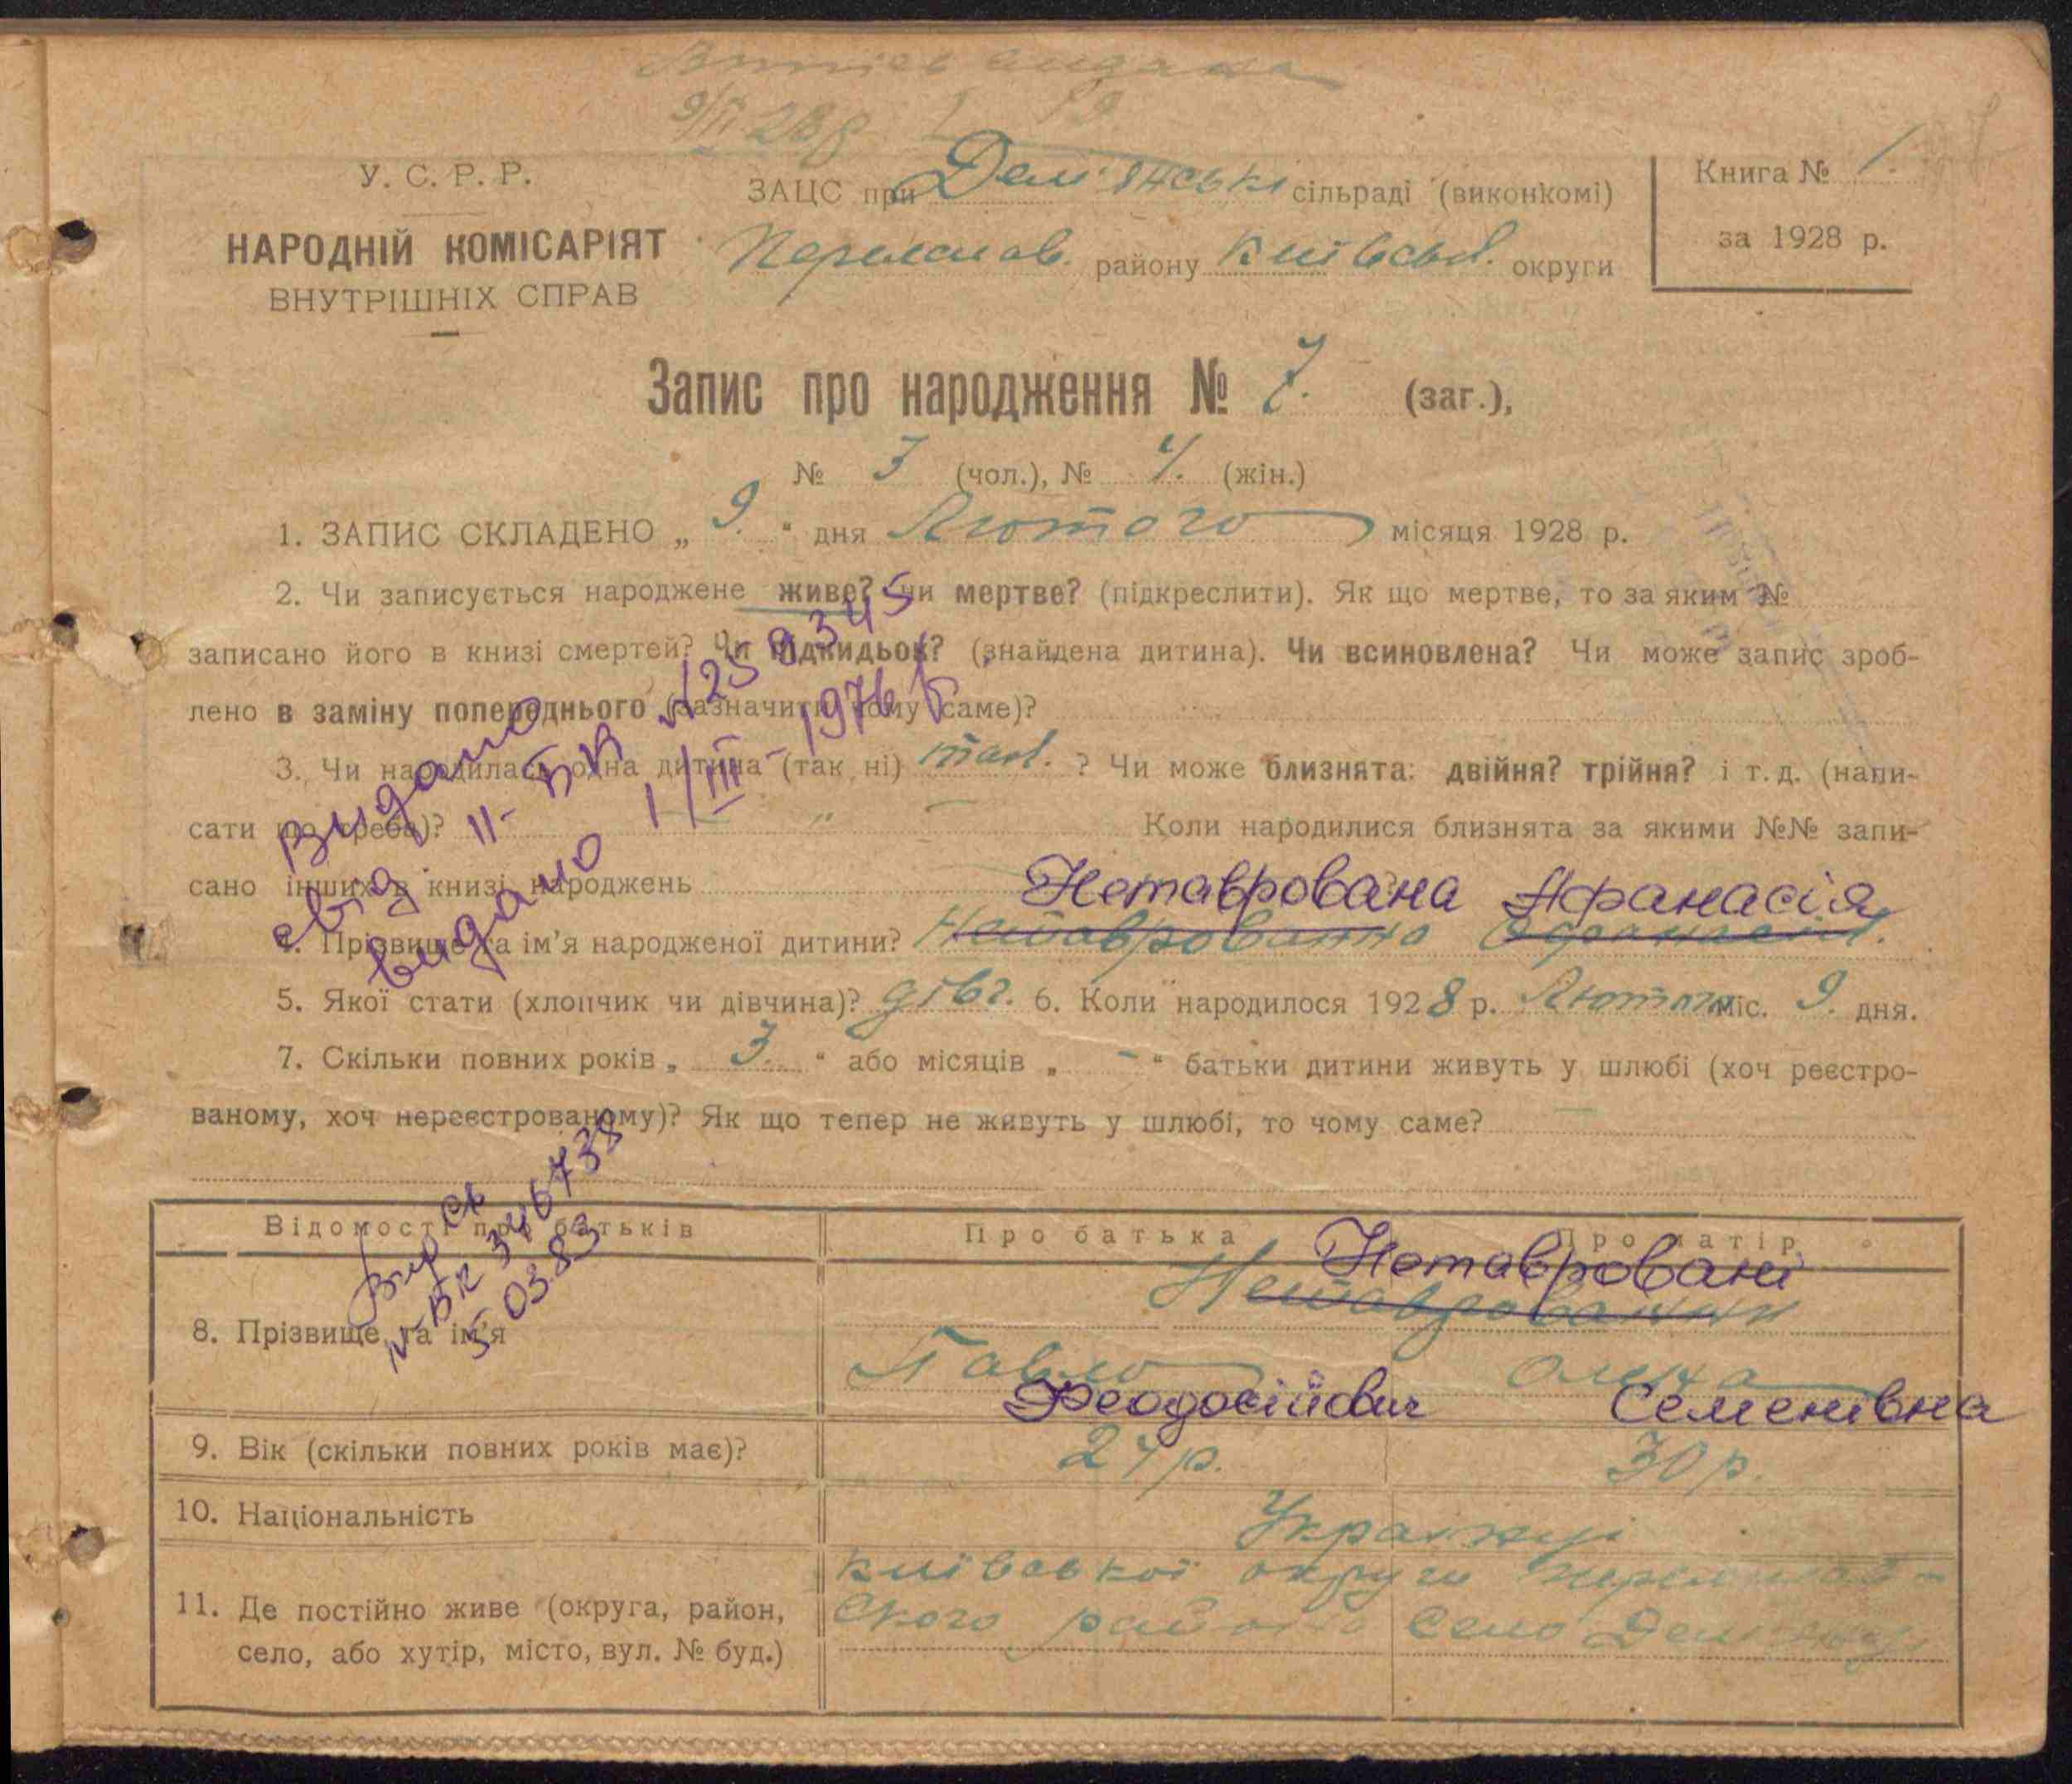 Витпісь видана
9/II 28 р.
У. С. Р. Р.
НАРОДНІЙ КОМІСАРІЯТ
ВНУТРІШНІХ СПРАВ
ЗАЦС при Дем'янські сільраді (виконкомі)
Переяслав. району Київськ. округи
Книга № 1.
за 1928 р.
Запис про народження № 7. (заг.),
№ 3 (чол.), № 4. (жін.)
1. ЗАПИС СКЛАДЕНО „ 9. " дня Лютого місяця 1928 р.
2. Чи записується народжене живе? чи мертве? (підкреслити). Як що мертве, то за яким №
записано його в книзі смертей? Чи підкидьок? (знайдена дитина). Чи всиновлена? Чи може запис зроб-
лено в заміну попереднього (зазначити чому саме)?
3. Чи народилась одна дитина (так, ні) так. ? Чи може близнята: двійня? трійня? і т. д. (напи-
сати що треба)? " Коли народилися близнята за якими №№ запи-
сано інших в книзі народжень
Нетаврована Афанасія
4. Прізвище та ім'я народженої дитини?
5. Якої стати (хлопчик чи дівчина)? дівч. 6. Коли народилося 1928 р. Лютого міс. 9. дня.
7. Скільки повних років „ 3. " або місяців „ - " батьки дитини живуть у шлюбі (хоч реєстро-
ваному, хоч нереєстрованому)? Як що тепер не живуть у шлюбі, то чому саме?
Видано
свід II-БК №258345
видано 1/III-1976 р.
Вид св
IV-БК 346738
5 03.83
Відомості про батьків Про батька Про матір
Нетавровані
8. Прізвище та ім'я
Павло Олена
Феодосійович Семенівна
9. Вік (скільки повних років має)? 24 р. 30 р.
10. Національність Українці
11. Де постійно живе (округа, район,
село, або хутір, місто, вул. № буд.)
Київської округи Переяслав-
ского району село Дем'янці